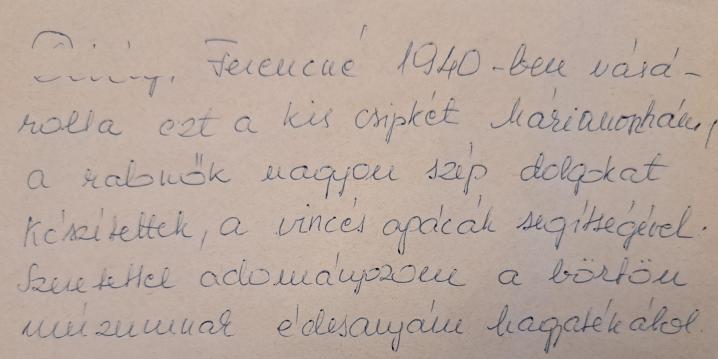 Ferencné 1940-ben vásá-
rolta ezt a kis csipkét Márianosztrán,
a rabnők nagyon szép dolgokat
készítettek, a vincés apácák segítségével.
Szeretettel adományozom a börtön
múzeumnak édesanyám hagyatékából.